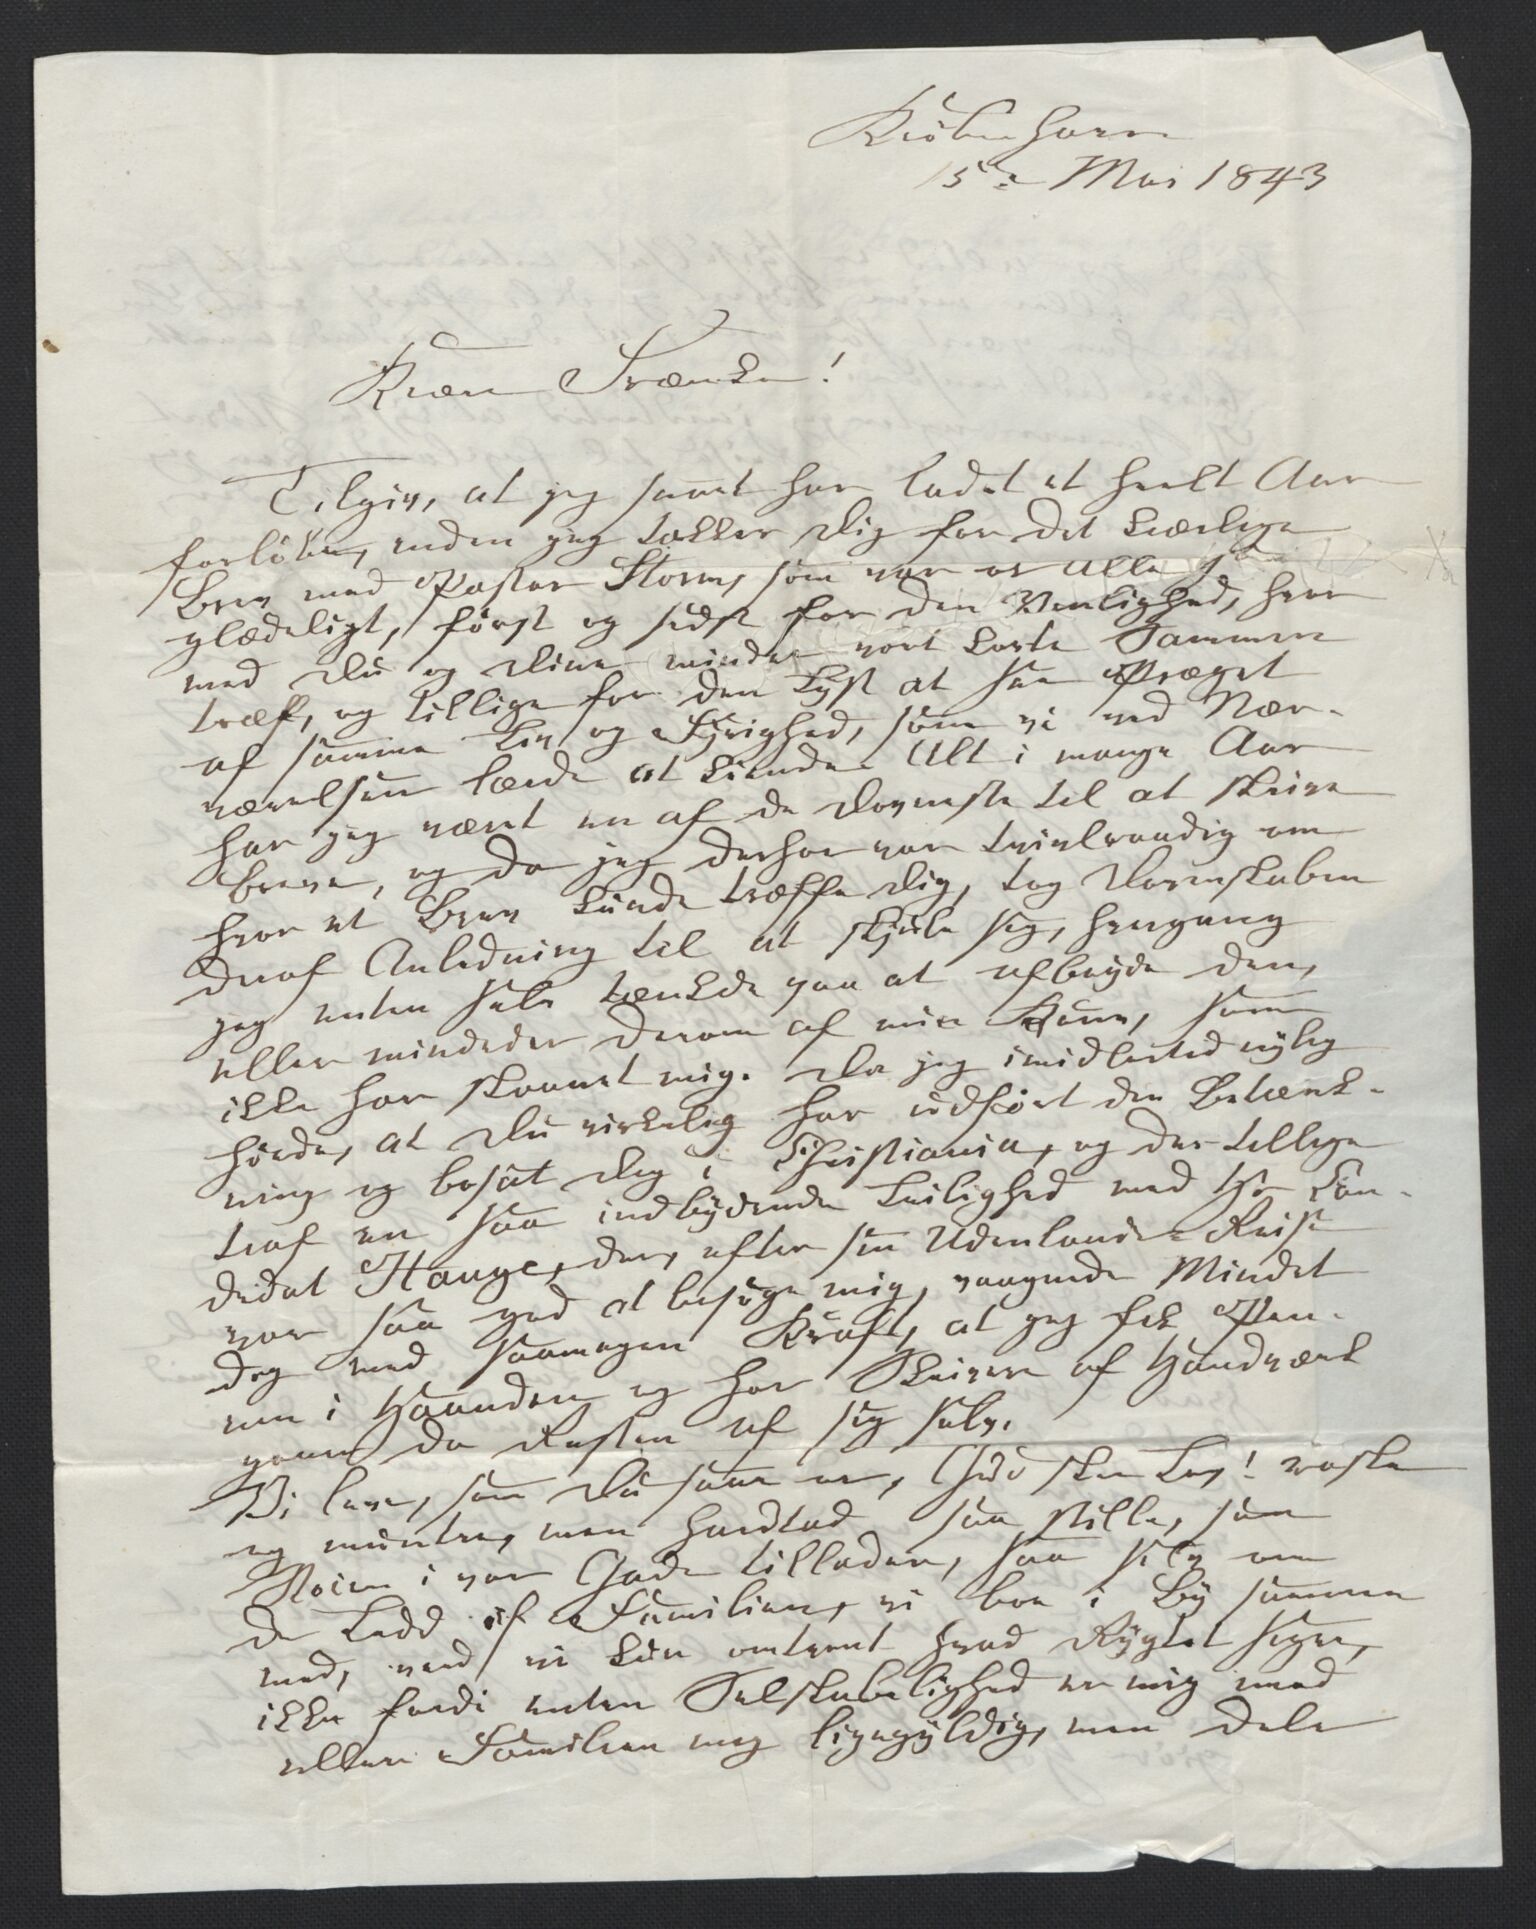 Kiöbenhavn
15de Mai 1843
Kiære Frænke!
Tilgiv, at jeg saaet har ladet et heelt Aar
forlöbe, inden jeg takker Dig for det kierlige
Brev med Pastor Storm, som var os alle
glædeligt, först og sidst for den Venlighed, hvor
med Du og Dine mindes vort korte Sammen
træf, og tillige for den Lyst at see Præget
af samme Liv og Fyrighed, som vi ved Nær-
værelsen lærde at kiende. Alt i mange Aar
har jeg været en af de Dovneste til at skrive
Breve, og da jeg derhos var tvivlraadig om
hvor et Brev kunde træffe Dig, tog Dovenskaben
deraf Anledning til at skjule sig, hvergang
jeg enten selv tænkde paa at afbryde den,
eller mindedes derom af min Kone, som
ikke har skaanet mig. Da jeg imidlertid nylig
hörde, at Du virkelig har udfört din Betænk-
ning og bosat Dig i Christiania, og der tillige
traf en saa indbydende Leilighed med Hr Can-
didat Hauge, der, efter sin Udenlands-Reise
var saa god at besöge mig, vaagnede Mindet
dog med saamegen Kraft, at jeg fik Pen-
nen i Haanden og hos Skrivere af Haandværk
gaaer da Resten af sig selv.
Vi leve, som Du sauer os, Gud skee Lov! raske
og muntre, men hardtad saa stille, som
Stöien i vor Gade tillader, saa selv om
de Ledd af Familien, vi boe i By sammen
med, veed vi kun omtrent hvad Rygtet siger,
ikke fordi enten Selskabelighed er mig imod
eller Familien mig ligegyldig, men dels